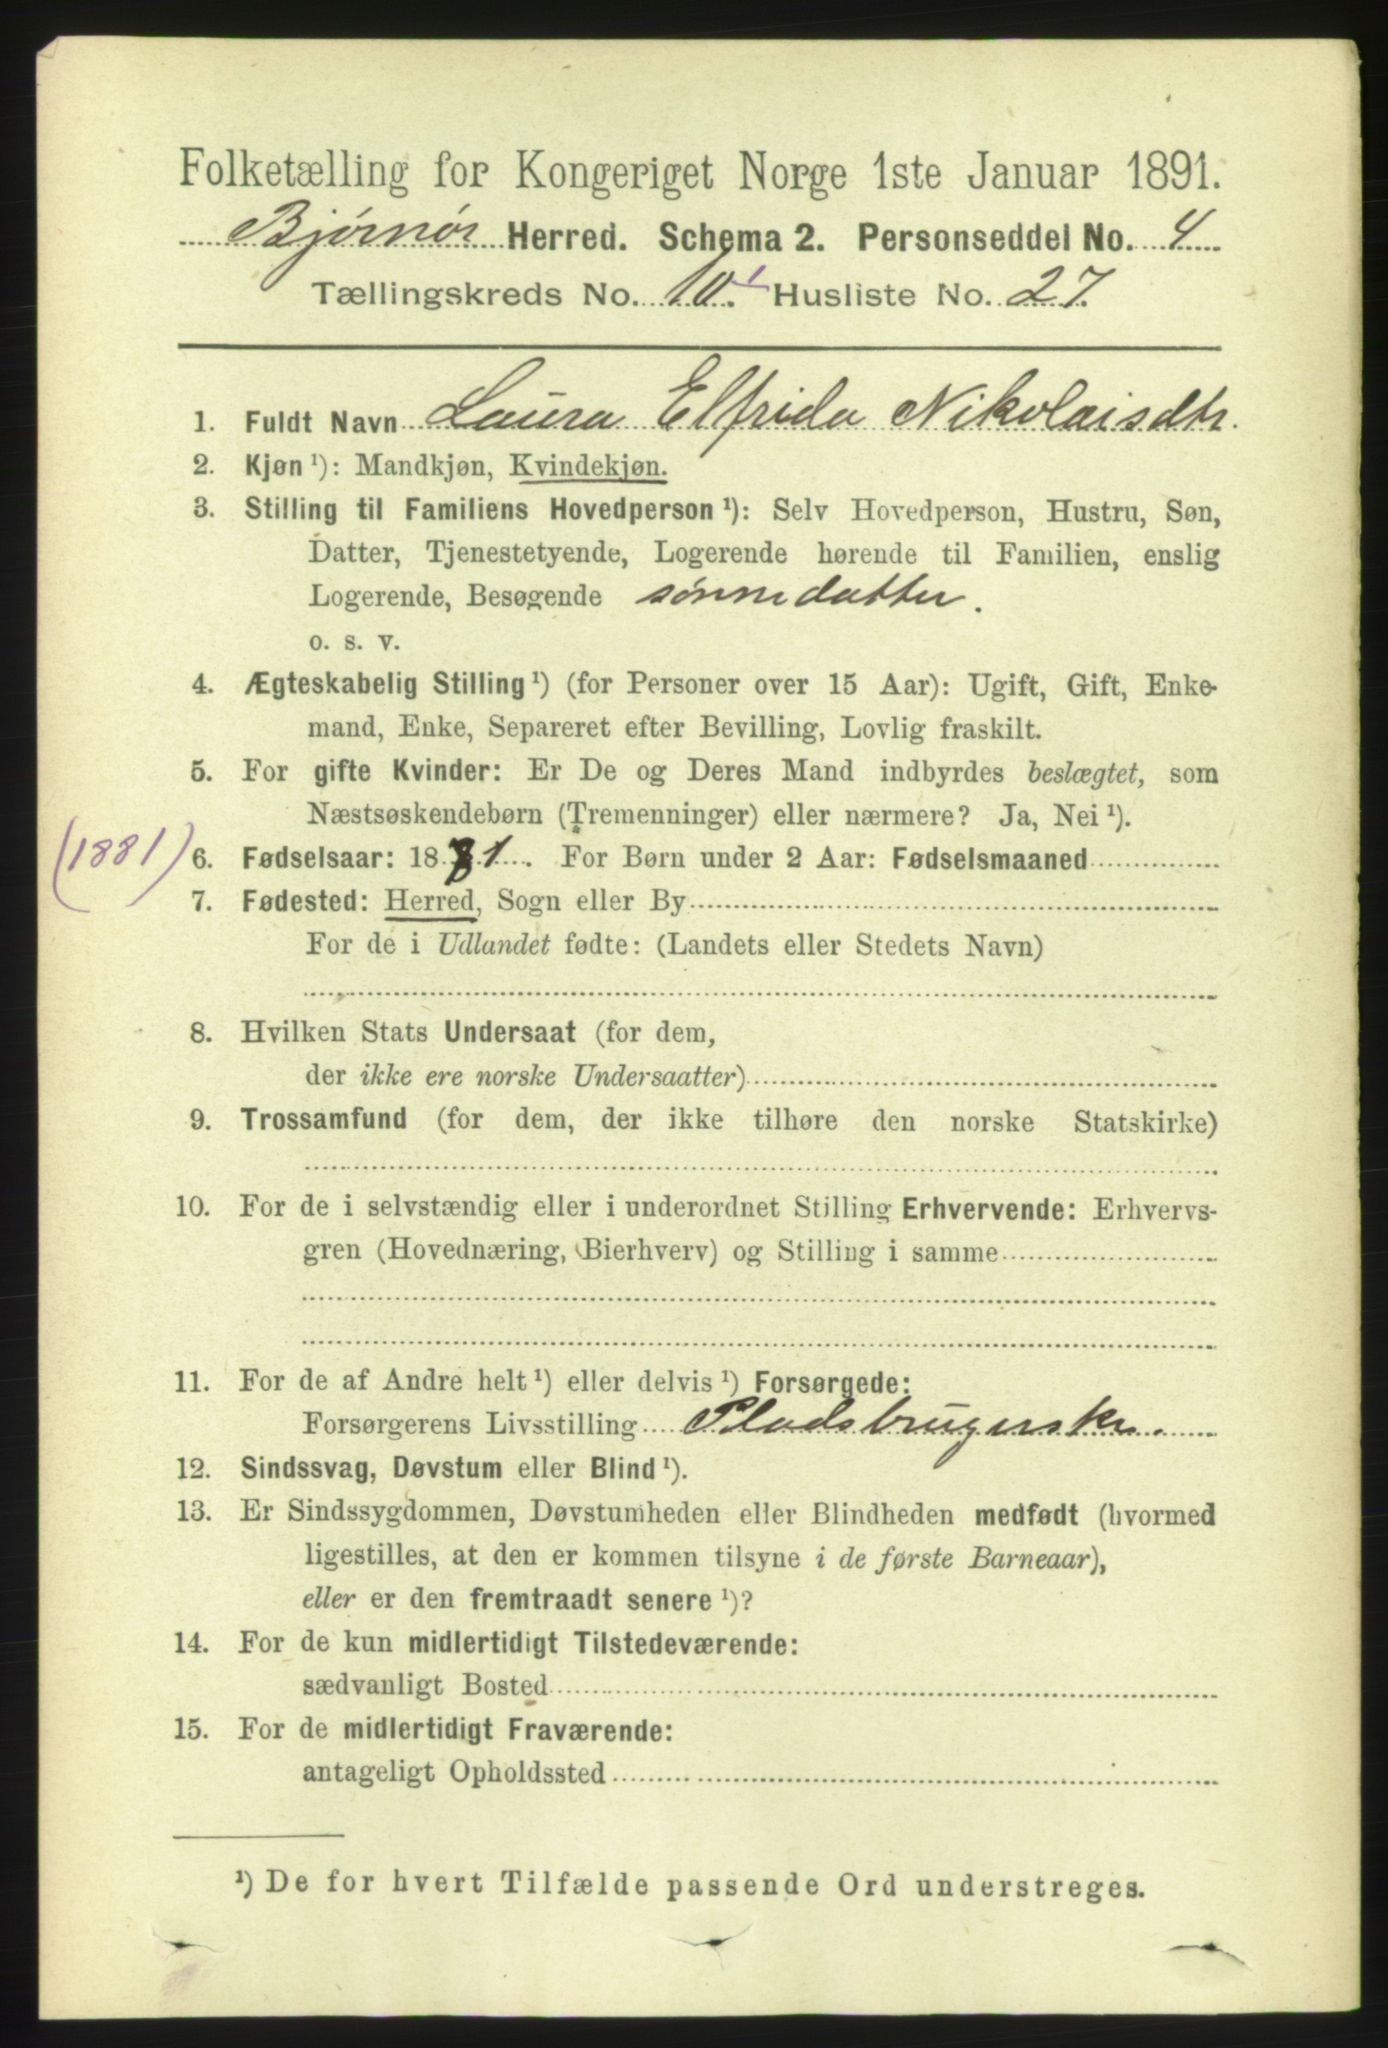 Folketælling for Kongeriget Norge 1ste Januar 1891.
Bjørnør Herred. Schema 2. Personseddel No. 4
Tællingskreds No. 10. Husliste No. 27.
1. Fuldt Navn Laura Elfrida Nikolaisdtr.
2. Kjøn ¹): Mandkjøn, Kvindekjøn.
3. Stilling til Familiens Hovedperson ¹): Selv Hovedperson, Hustru, Søn,
Datter, Tjenestetyende, Logerende hørende til Familien, enslig
Logerende, Besøgende sønnedatter.
o. s. v.
4. Ægteskabelig Stilling ¹) (for Personer over 15 Aar): Ugift, Gift, Enke-
mand, Enke, Separeret efter Bevilling, Lovlig fraskilt.
5. For gifte Kvinder: Er De og Deres Mand indbyrdes beslægtet, som
Næstsøskendebørn (Tremenninger) eller nærmere? Ja, Nei ¹).
(1881) 6. Fødselsaar: 1881. For Børn under 2 Aar: Fødselsmaaned
7. Fødested: Herred, Sogn eller By
For de i Udlandet fødte: (Landets eller Stedets Navn)
8. Hvilken Stats Undersaat (for dem,
der ikke ere norske Undersaatter)
9. Trossamfund (for dem, der ikke tilhøre den norske Statskirke)
10. For de i selvstændig eller i underordnet Stilling Erhvervende: Erhvervs-
gren (Hovednæring, Bierhverv) og Stilling i samme
11. For de af Andre helt ¹) eller delvis ¹) Forsørgede:
Forsørgerens Livsstilling Pladsbrugerske.
12. Sindssvag, Døvstum eller Blind ¹).
13. Er Sindssygdommen, Døvstumheden eller Blindheden medfødt (hvormed
ligestilles, at den er kommen tilsyne i de første Barneaar),
eller er den fremtraadt senere ¹)?
14. For de kun midlertidigt Tilstedeværende:
sædvanligt Bosted
15. For de midlertidigt Fraværende:
antageligt Opholdssted
¹) De for hvert Tilfælde passende Ord understreges.